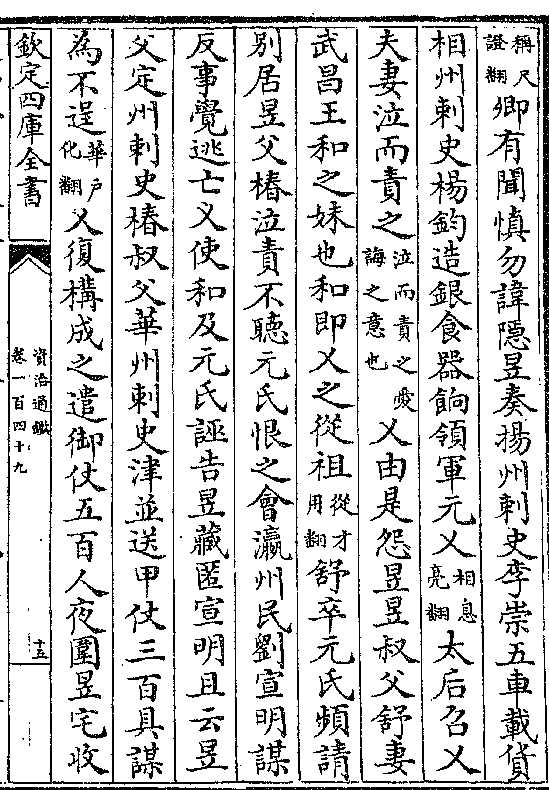 稱尺證翻卿有聞慎勿諱隱昱奏揚州刺史李崇五車載貨
相州刺史楊鈞造銀食器餉領軍元乂相息亮翻太后召乂
夫妻泣而責之泣而責之愛誨之意也乂由是怨昱昱叔父舒妻
武昌王和之妹也和即乂之從祖從才用翻舒卒元氏頻請
別居昱父椿泣責不聽元氏恨之會瀛州民劉宣明謀
反事覺逃亡乂使和及元氏誣告昱藏匿宣明且云昱
父定州刺史椿叔父華州刺史津並送甲仗三百具謀
為不逞華户化翻乂復構成之遣御仗五百人夜圍昱宅收
欽定四庫全書
資治通鑑
卷一百四十九
十五